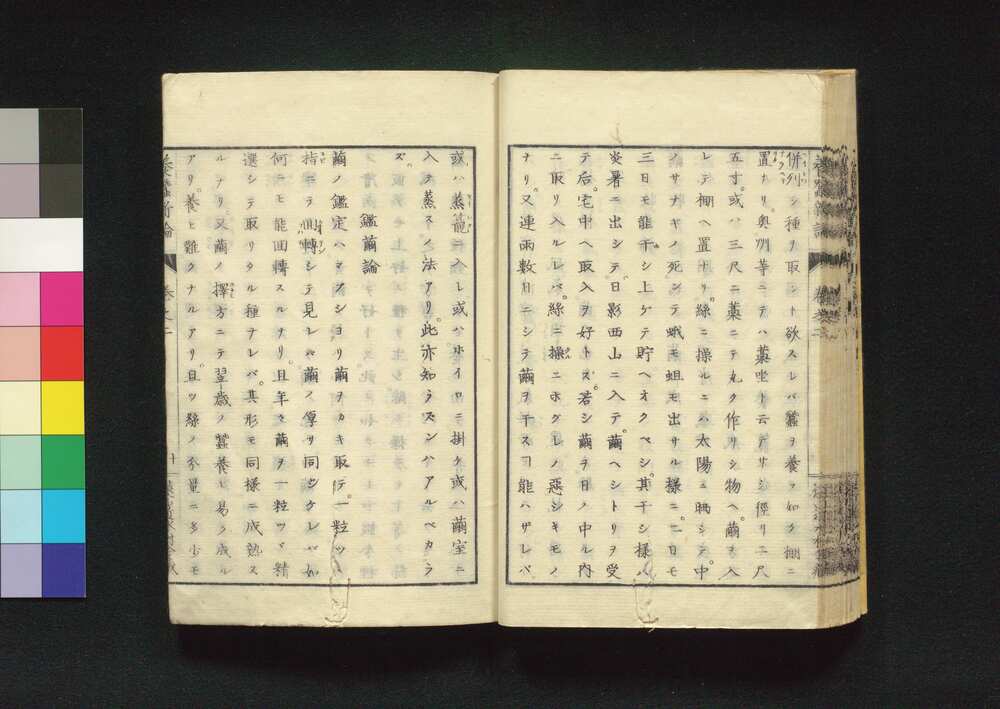 併列シ種ヲ取ント欲スレバ蠶ヲ養フ如ク棚ニ
置ナリ。奥州等ニテハ藁坐ト云テサシ徑リ二尺
五寸。或ハ三尺ニ藁ニテ丸ク作リシ物ヘ。繭ヲ入
レテ棚ヘ置ナリ。絲ニ操ルニハ太陽ニ晒シテ。中
ノサナギノ死シテ蛾モ蛆モ出サル樣ニ。二日モ
三日モ能干シ上ケテ貯ヘオクベシ。其干シ樣ハ
炎暑ニ出シテ。日影西山ニ入テ。繭ヘシトリヲ受
テ后。宅中ヘ取入ヲ好トズ。若シ繭ヲ日ノ中ル内
ニ取リ入ルレバ。絲ニ操ニホグレノ惡シキモノ
ナリ。又連雨數日ニシテ繭ヲ干スヿ能ハザレバ
或ハ蒸籠ニ入レ或ハホイロニ掛ケ或ハ繭室ニ
入テ蒸スノ法アリ。此亦知ラズンハアルベカラ
ズ。
鑑繭論
繭ノ鑑定ハマブシヨリ繭ヲカキ取テ。一粒ツヽ
指ニテ回轉シテ見レバ繭ノ厚サ同シケレバ如
何ニモ能回轉スルナリ。且年々繭ヲ一粒ツヽ精
選シテ取リタル種ナレバ。其形モ同樣ニ成熟ス
ルナリ。又繭ノ擇方ニテ翌歳ノ蠶養ヒ易ク成ル
アリ。養ヒ難クナルアリ。且ツ絲ノ分量ニ多少モ
養蠶新論
卷之二
十一